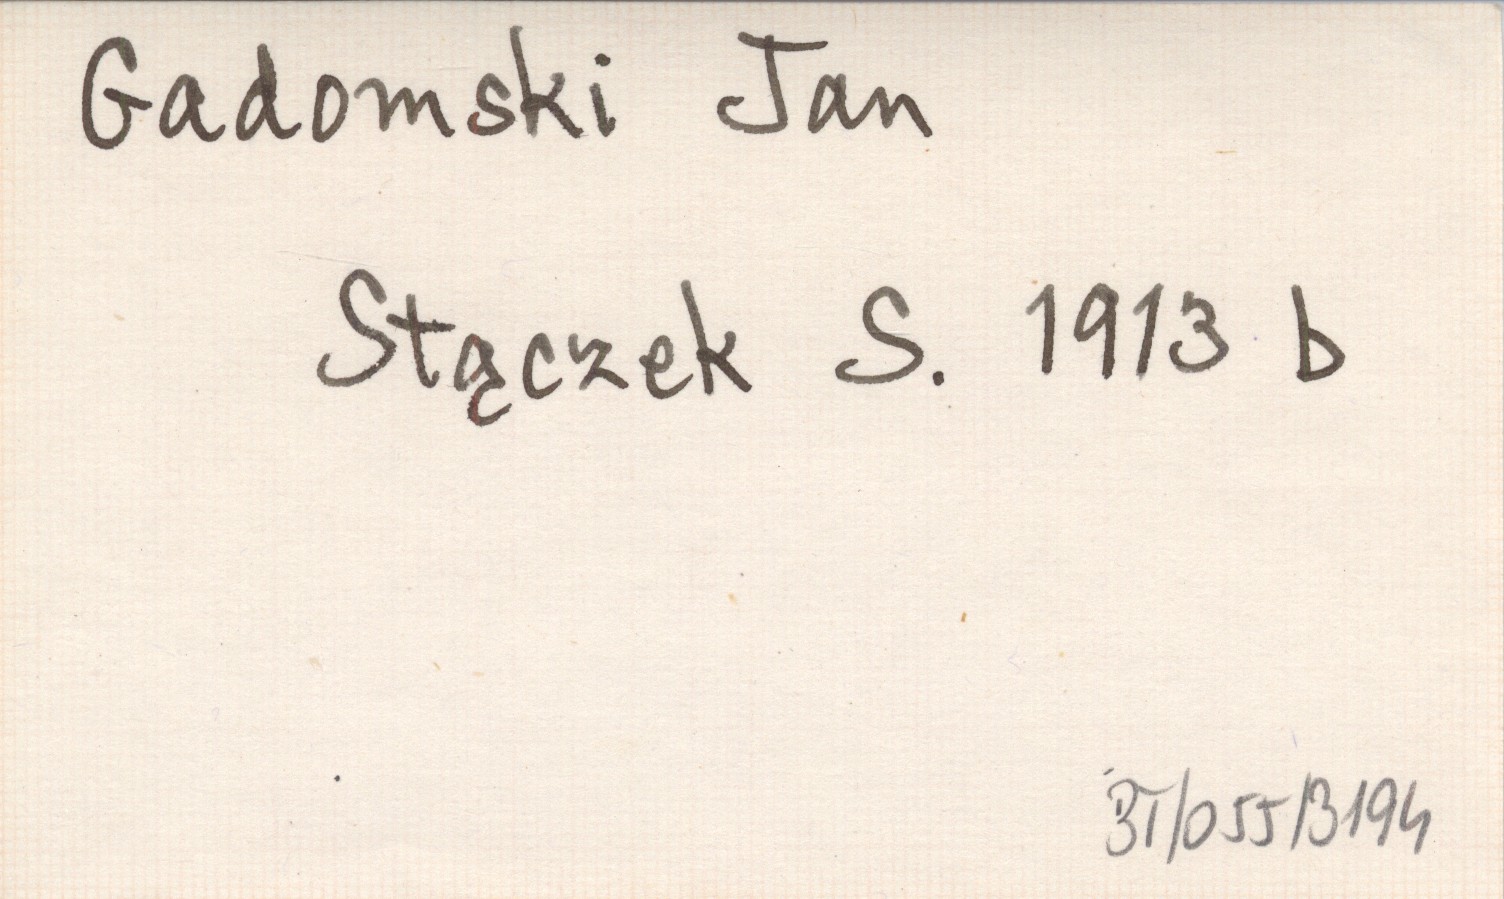 Gadomski Jan
Stączek S. 1913 b
BT/055/3194